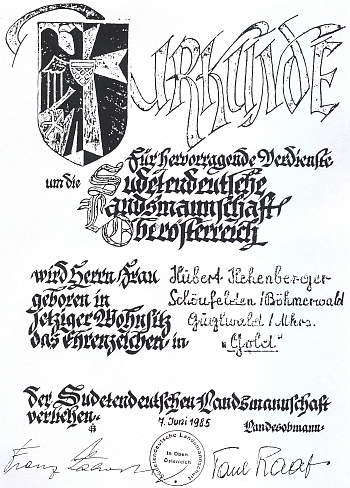 URKUNDE
Für hervorragende Verdienste
um die Sudetendeutsche
Landsmannschaft
Oberösterreich
wird Herrn/Frau Hubert Hehenberger
geboren in Schönfelden/Böhmerwald
Jetziger Wohnsitz Guglwald/Mkrs.
das Ehrenzeichen in "Gold"
der Sudetendeutschen Landsmannschaft
verliehen.
7. Juni 1985
Landesobmann
Sudetendeutsche Landsmannschaft
in Ober
Österreich
Franz
Paul Raaf